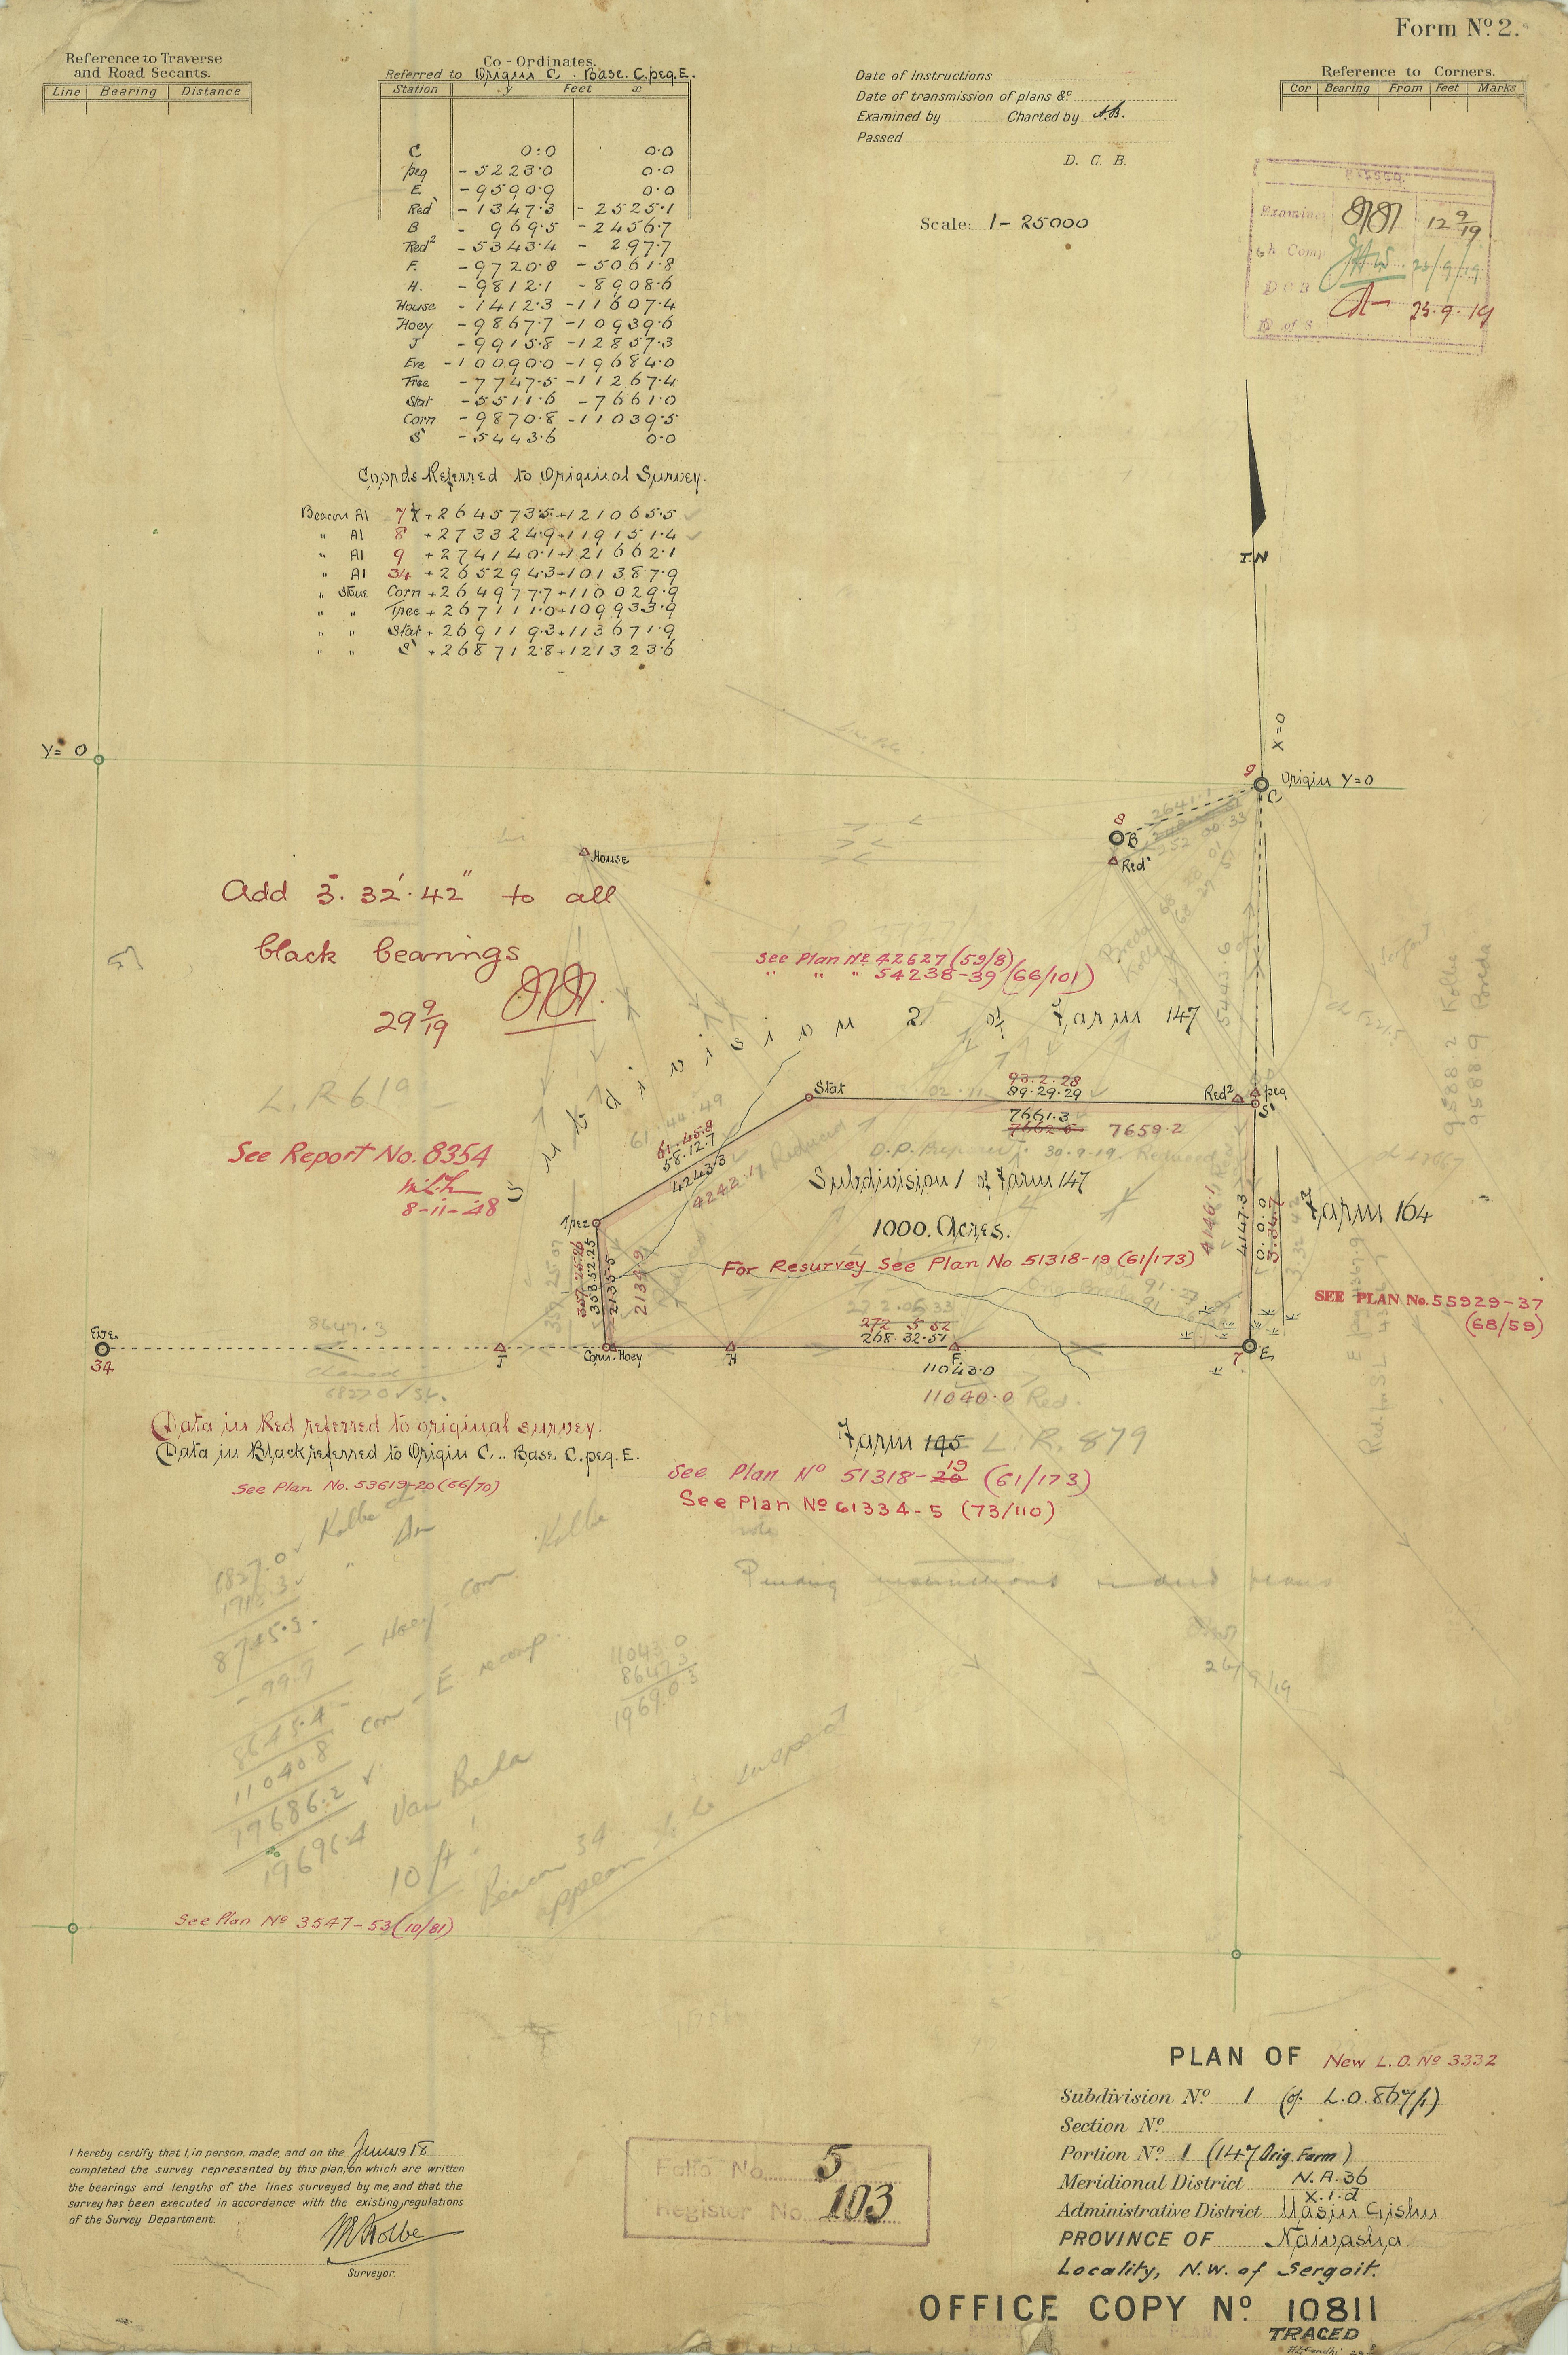 Form No. 2.
Reference to Traverse
and Road Secants.
Line Bearing Distance
Co-Ordinates.
Referred to Origin C. Base. C.peg.E.
Station y Feet x
C 0:0 0.0
peg -5223.0 0.0
E -9590.9 0.0
Red' -1347.3 -2525.1
B -969.5 -2456.7
Red2 -5343.4 -297.7
F. -9720.8 -5061.8
H. -9812.1 -8908.6
House -1412.3 -11607.4
Hoey -9867.7 -10939.6
J -9915.8 -12857.3
Eve -10090.0 -19684.0
Tree -7747.5 -11267.4
Stat -5511.6 -7661.0
Corn -9870.8 -11039.5
S' -5443.6 0.0
Coords Referred to Original Survey.
Beacon Al 7 +264573.5 +121065.5
" Al 8 +273324.9 +119151.4
" Al 9 +274140.1 +121662.1
" Al 34 +265294.3 +101387.9
" Stone Corn +264977.7 +110029.9
" " Tree +267111.0 +109933.9
" " Stat +269119.3 +113671.9
" " S' +268712.8 +121323.6
Date of Instructions
Date of transmission of plans &c
Examined by Charted by A.B.
Passed
D. C. B.
Scale: 1-25000
Reference to Corners.
Cor Bearing From Feet Marks
PASSED.
Examined 12 9/19
Ch Comp 23/9/19
D C B 23.9.19
D of S
T.N
X=0
Y= 0
9 Origin Y=0
C
8
B
Red'
2641.1
252.00.33
House
Add 3°. 32'. 42" to all
black bearings
29 9/19
See Plan No 42627 (59/8)
" " " 54238-39 (66/101)
Subdivision 2 of Farm 147
L.R 619
See Report No. 8354
8-11-48
Stat
93.2.28
89.29.29
7661.3
7662.6 7659.2
Red2 peg
S'
5443.6
61.44.49
61.45.8
58.12.7
4243.3
4242.1 Reduced
30.9.19. Reduced
Subdivision 1 of Farm 147
1000. Acres.
For Resurvey See Plan No 51318-19 (61/173)
Farm 164
4146.1
4147.3
0.0.0
SEE PLAN No. 55929-37
(68/59)
9588.2 Kolbe
9588.9 Breda
Tree
353.52.25
2135.5
2134.9
Eve.
34
8647.3
J
Corn. Hoey
H
F.
272.05.33
272 5 52
268.32.51
11043.0
11040.0 Red.
7 E
Data in Red referred to original survey.
Data in Black referred to Origin C... Base C.peg.E.
See Plan No. 53619-20 (66/70)
Farm 145 L.R. 879
See Plan No 51318-20 19 (61/173)
See Plan No 61334-5 (73/110)
6827.0 Kolbe
8745.3
- 99.9 - Hoey - Corn Kolbe
8645.4
11040.8 Corn - E recomp.
19686.2
19696.4 Van Breda
10 ft!
Beacon 34
appears to be suspect
11043.0
8647.3
19690.3
Pending instructions
See Plan No 3547-53 (10/81)
PLAN OF New L.O. No 3332
Subdivision No. 1 (of L.O. 867/1)
Section No.
Portion No. 1 (147 Orig. Farm)
Meridional District N.A. 36
X.1.d
Administrative District Uasin Gishu
PROVINCE OF Naivasha
Locality, N.W. of Sergoit.
OFFICE COPY No. 10811
TRACED
I hereby certify that I, in person, made, and on the June 1918
completed the survey represented by this plan, on which are written
the bearings and lengths of the lines surveyed by me, and that the
survey has been executed in accordance with the existing regulations
of the Survey Department.
Kolbe
Surveyor.
Folio No. 5
Register No. 103